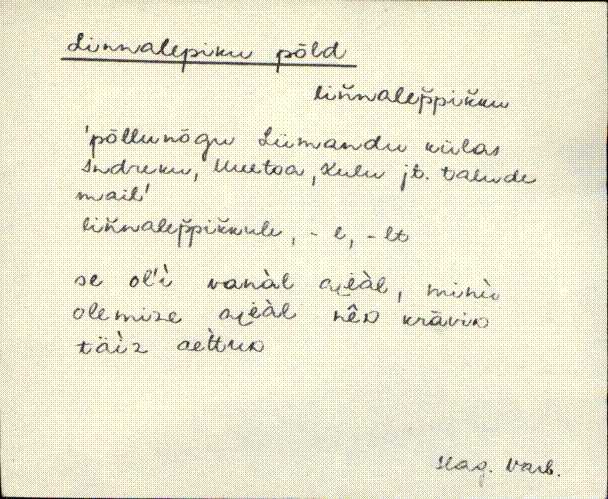 Linnalepiku põld
lin̆nalep̆pik̆ku
'põllunõgu Liimandu külas
Indreku, Uuetoa, Kulu jt. talude
mail'
lin̆nalep̆pik̆kule, -l, -lt
se ol'ì vanàl ai̯èàl, minù
olemise ai̯èàl nêᴅ krāviᴅ
täìz aèttuᴅ
Hag. Varb.